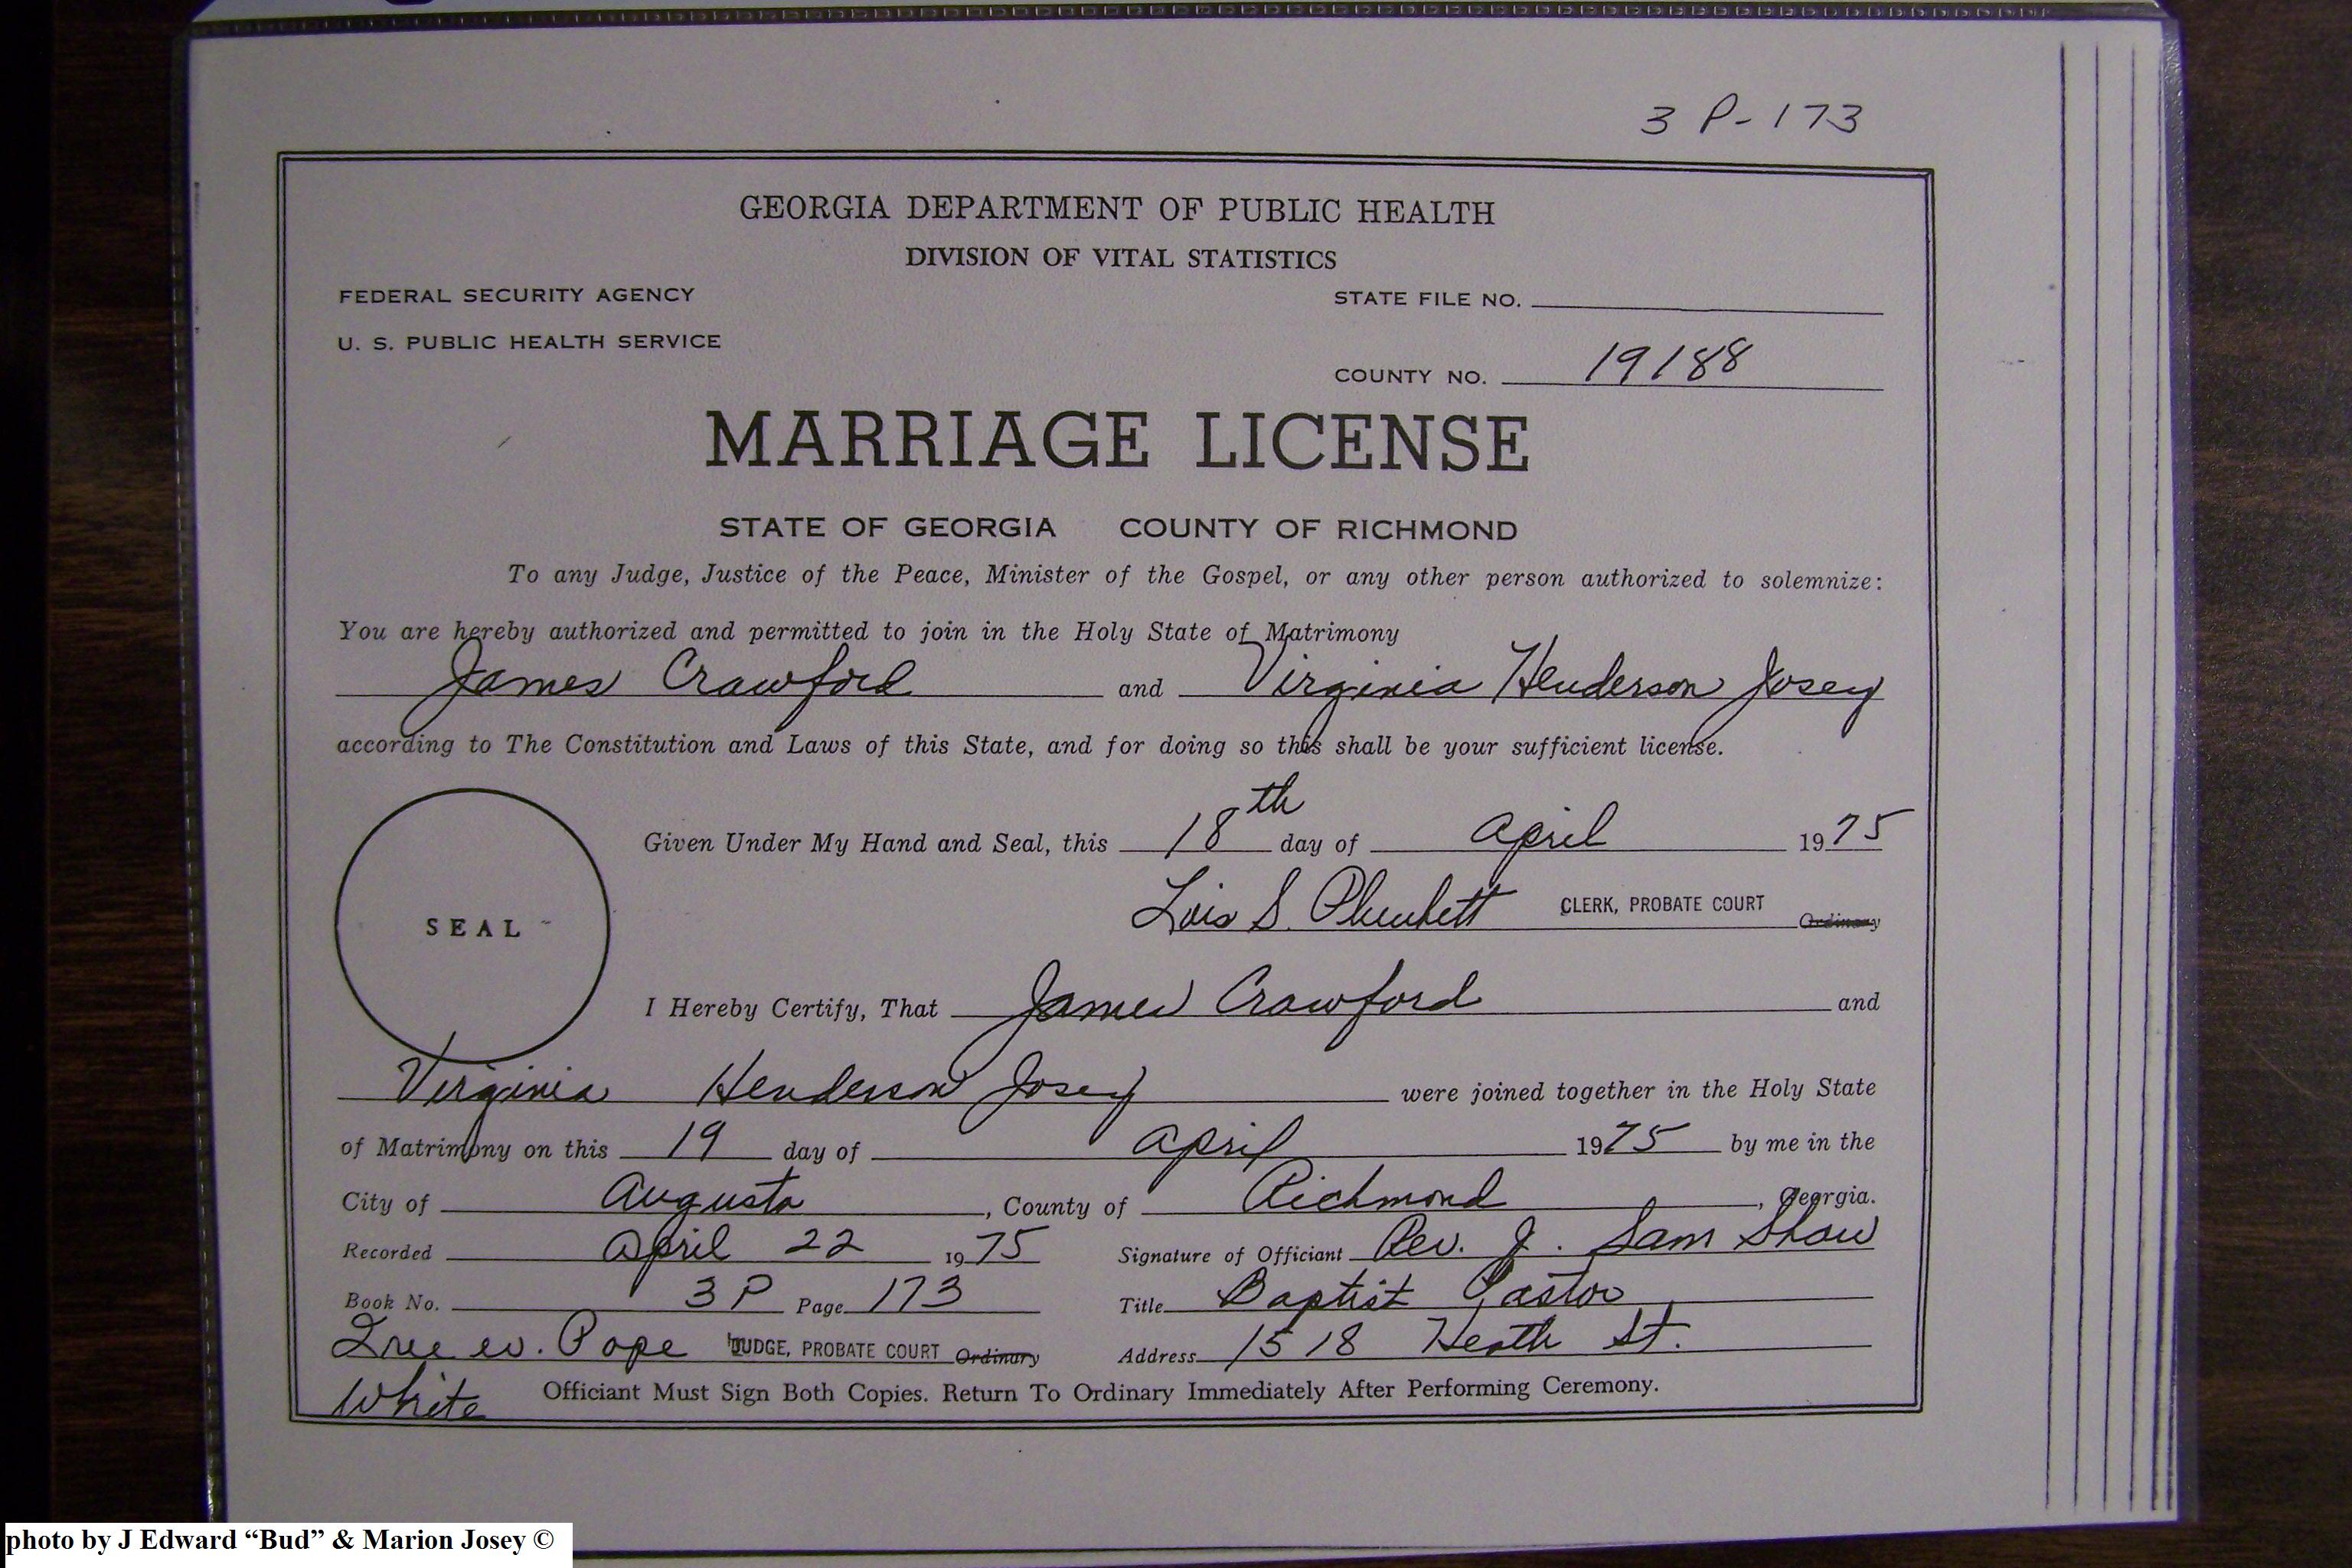 3 P-173
GEORGIA DEPARTMENT OF PUBLIC HEALTH
DIVISION OF VITAL STATISTICS
FEDERAL SECURITY AGENCY
STATE FILE NO.
U. S. PUBLIC HEALTH SERVICE
COUNTY NO. 19188
MARRIAGE LICENSE
STATE OF GEORGIA COUNTY OF RICHMOND
To any Judge, Justice of the Peace, Minister of the Gospel, or any other person authorized to solemnize:
You are hereby authorized and permitted to join in the Holy State of Matrimony
James Crawford and Virginia Henderson Josey
according to The Constitution and Laws of this State, and for doing so this shall be your sufficient license.
Given Under My Hand and Seal, this 18th day of April 1975
Lois S. Plunkett CLERK, PROBATE COURT Ordinary
SEAL
I Hereby Certify, That James Crawford and
Virginia Henderson Josey were joined together in the Holy State
of Matrimony on this 19 day of April 1975 by me in the
City of Augusta, County of Richmond, Georgia.
Recorded April 22 1975 Signature of Officiant Rev. J. Sam Shaw
Book No. 3P Page 173 Title Baptist Pastor
W. Pope JUDGE, PROBATE COURT Ordinary Address 1518 Heath St.
White Officiant Must Sign Both Copies. Return To Ordinary Immediately After Performing Ceremony.
photo by J Edward “Bud” & Marion Josey ©